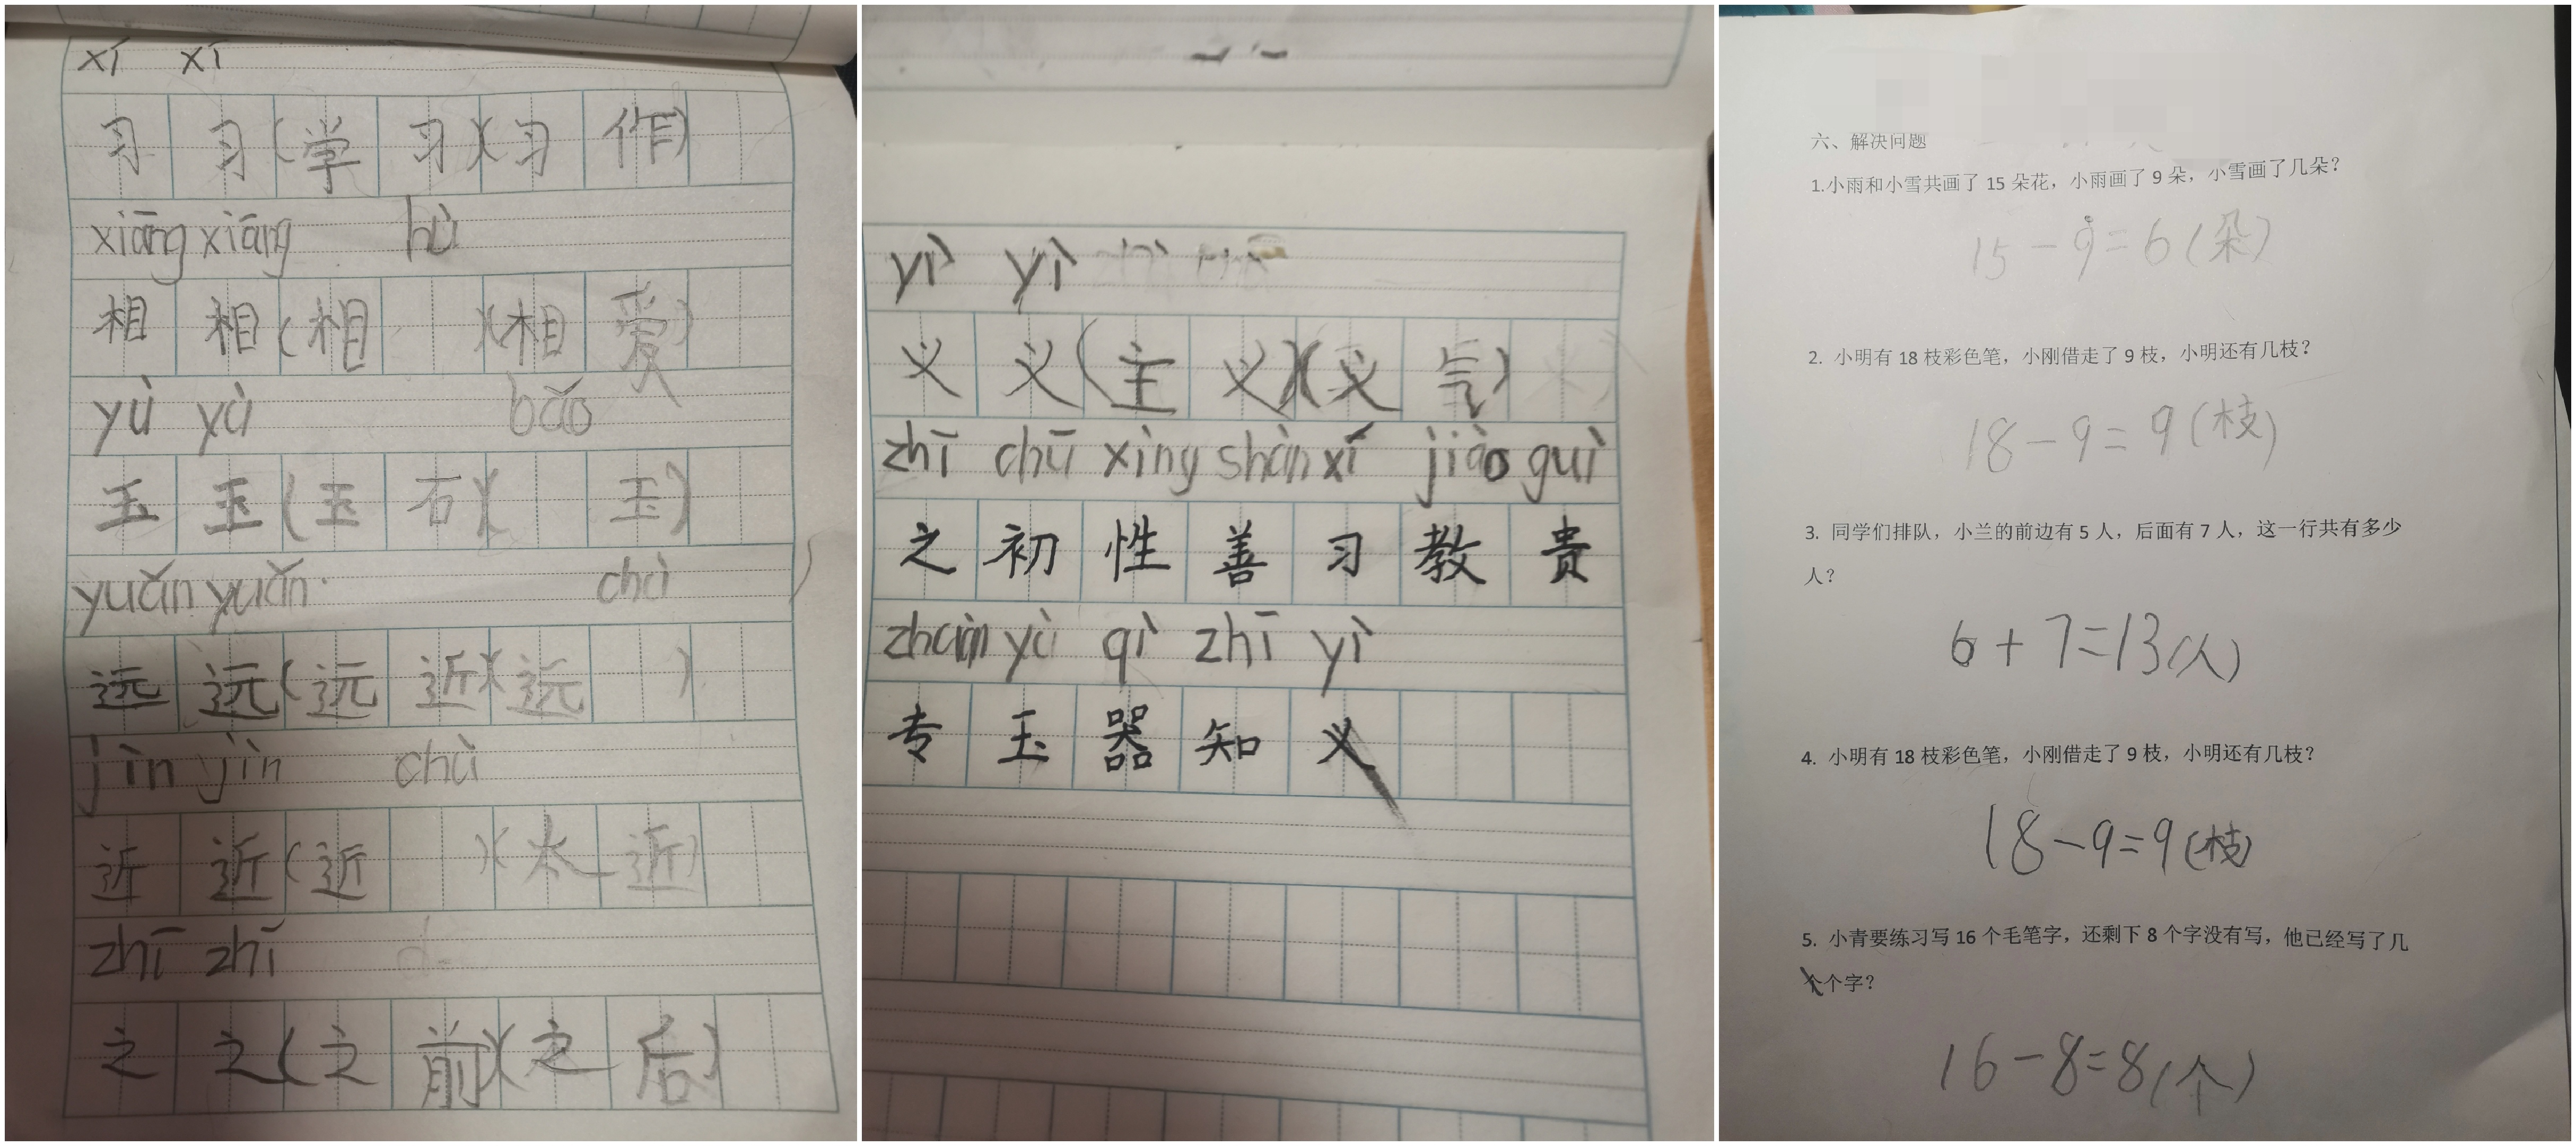 xí xí
习 习(学 习)(习 作)
xiāng xiāng hù
相 相(相 )(相 爱)
yù yù bǎo
玉 玉(玉 石)( 玉)
yuǎn yuǎn chù
远 远(远 近)(远 )
jìn jìn chù
近 近(近 )( 近)
zhī zhī
之 之(之 前)(之 后)
yì yì
义 义(主 义)(义 气)
zhī chū xìng shàn xí jiào guì
之 初 性 善 习 教 贵
zhuān yù qì zhī yì
专 玉 器 知 义
六、解决问题
1.小雨和小雪共画了 15 朵花，小雨画了 9 朵，小雪画了几朵？
15-9=6(朵)
2. 小明有 18 枝彩色笔，小刚借走了 9 枝，小明还有几枝？
18-9=9(枝)
3. 同学们排队，小兰的前边有 5 人，后面有 7 人，这一行共有多少
人？
6+7=13(人)
4. 小明有 18 枝彩色笔，小刚借走了 9 枝，小明还有几枝？
18-9=9(枝)
5. 小青要练习写 16 个毛笔字，还剩下 8 个字没有写，他已经写了几
个个字？
16-8=8(个)